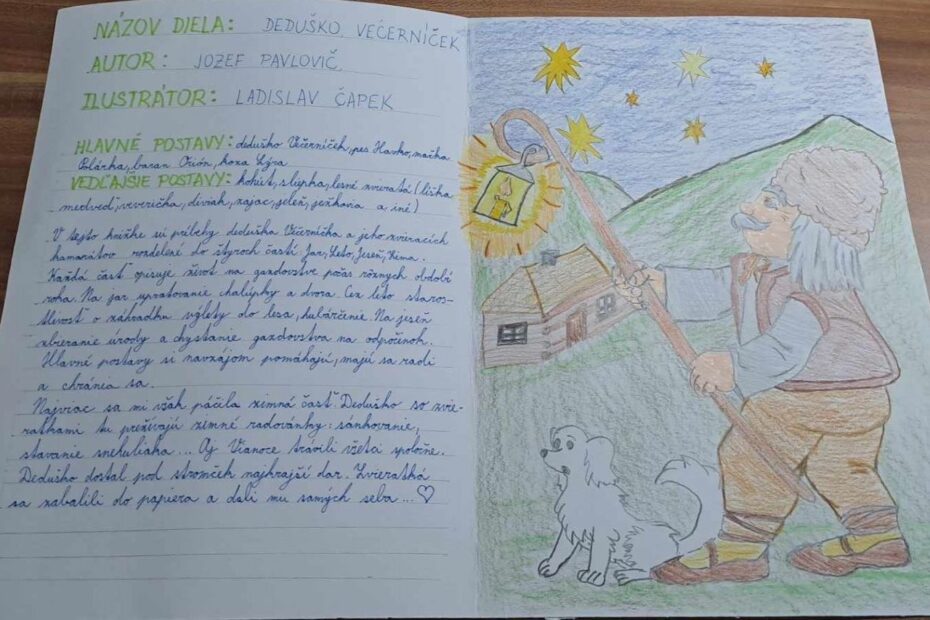 NÁZOV DIELA: DEDUŠKO VEČERNÍČEK
AUTOR: JOZEF PAVLOVIČ
ILUSTRÁTOR: LADISLAV ČAPEK
HLAVNÉ POSTAVY: deduško Večerníček, pes Havko, mačka
Polárka, baran Orión, koza Lýra
VEDĽAJŠIE POSTAVY: kohút, sliepka, lesné zvieratá (líška
medveď, veverička, diviak, zajac, jeleň, ježkona a iné)
V tejto knižke sú príbehy deduška Večerníčka a jeho zvieracích
kamarátov rozdelené do štyroch častí Jar, Leto, Jeseň, Zima.
Každá časť opisuje život na gazdovstve počas rôznych období
roka. Na jar upratovanie chalúpky a dvora. Cez leto staros-
tlivosť o záhradku výlety do lesa, hubárčenie. Na jeseň
zbieranie úrody a chystanie gazdovstva na odpočinok.
Hlavné postavy si navzájom pomáhajú, majú sa radi
a chránia sa.
Najviac sa mi však páčila zimná časť. Deduško so zvie-
ratkami tu prežívajú zimné radovánky: sánkovanie,
stavanie snehuliaka... Aj Vianoce trávili všetci spoločne.
Deduško dostal pod stromček najkrajší dar. Zvieratká
sa zabalili do papiera a dali mu samých seba...♡